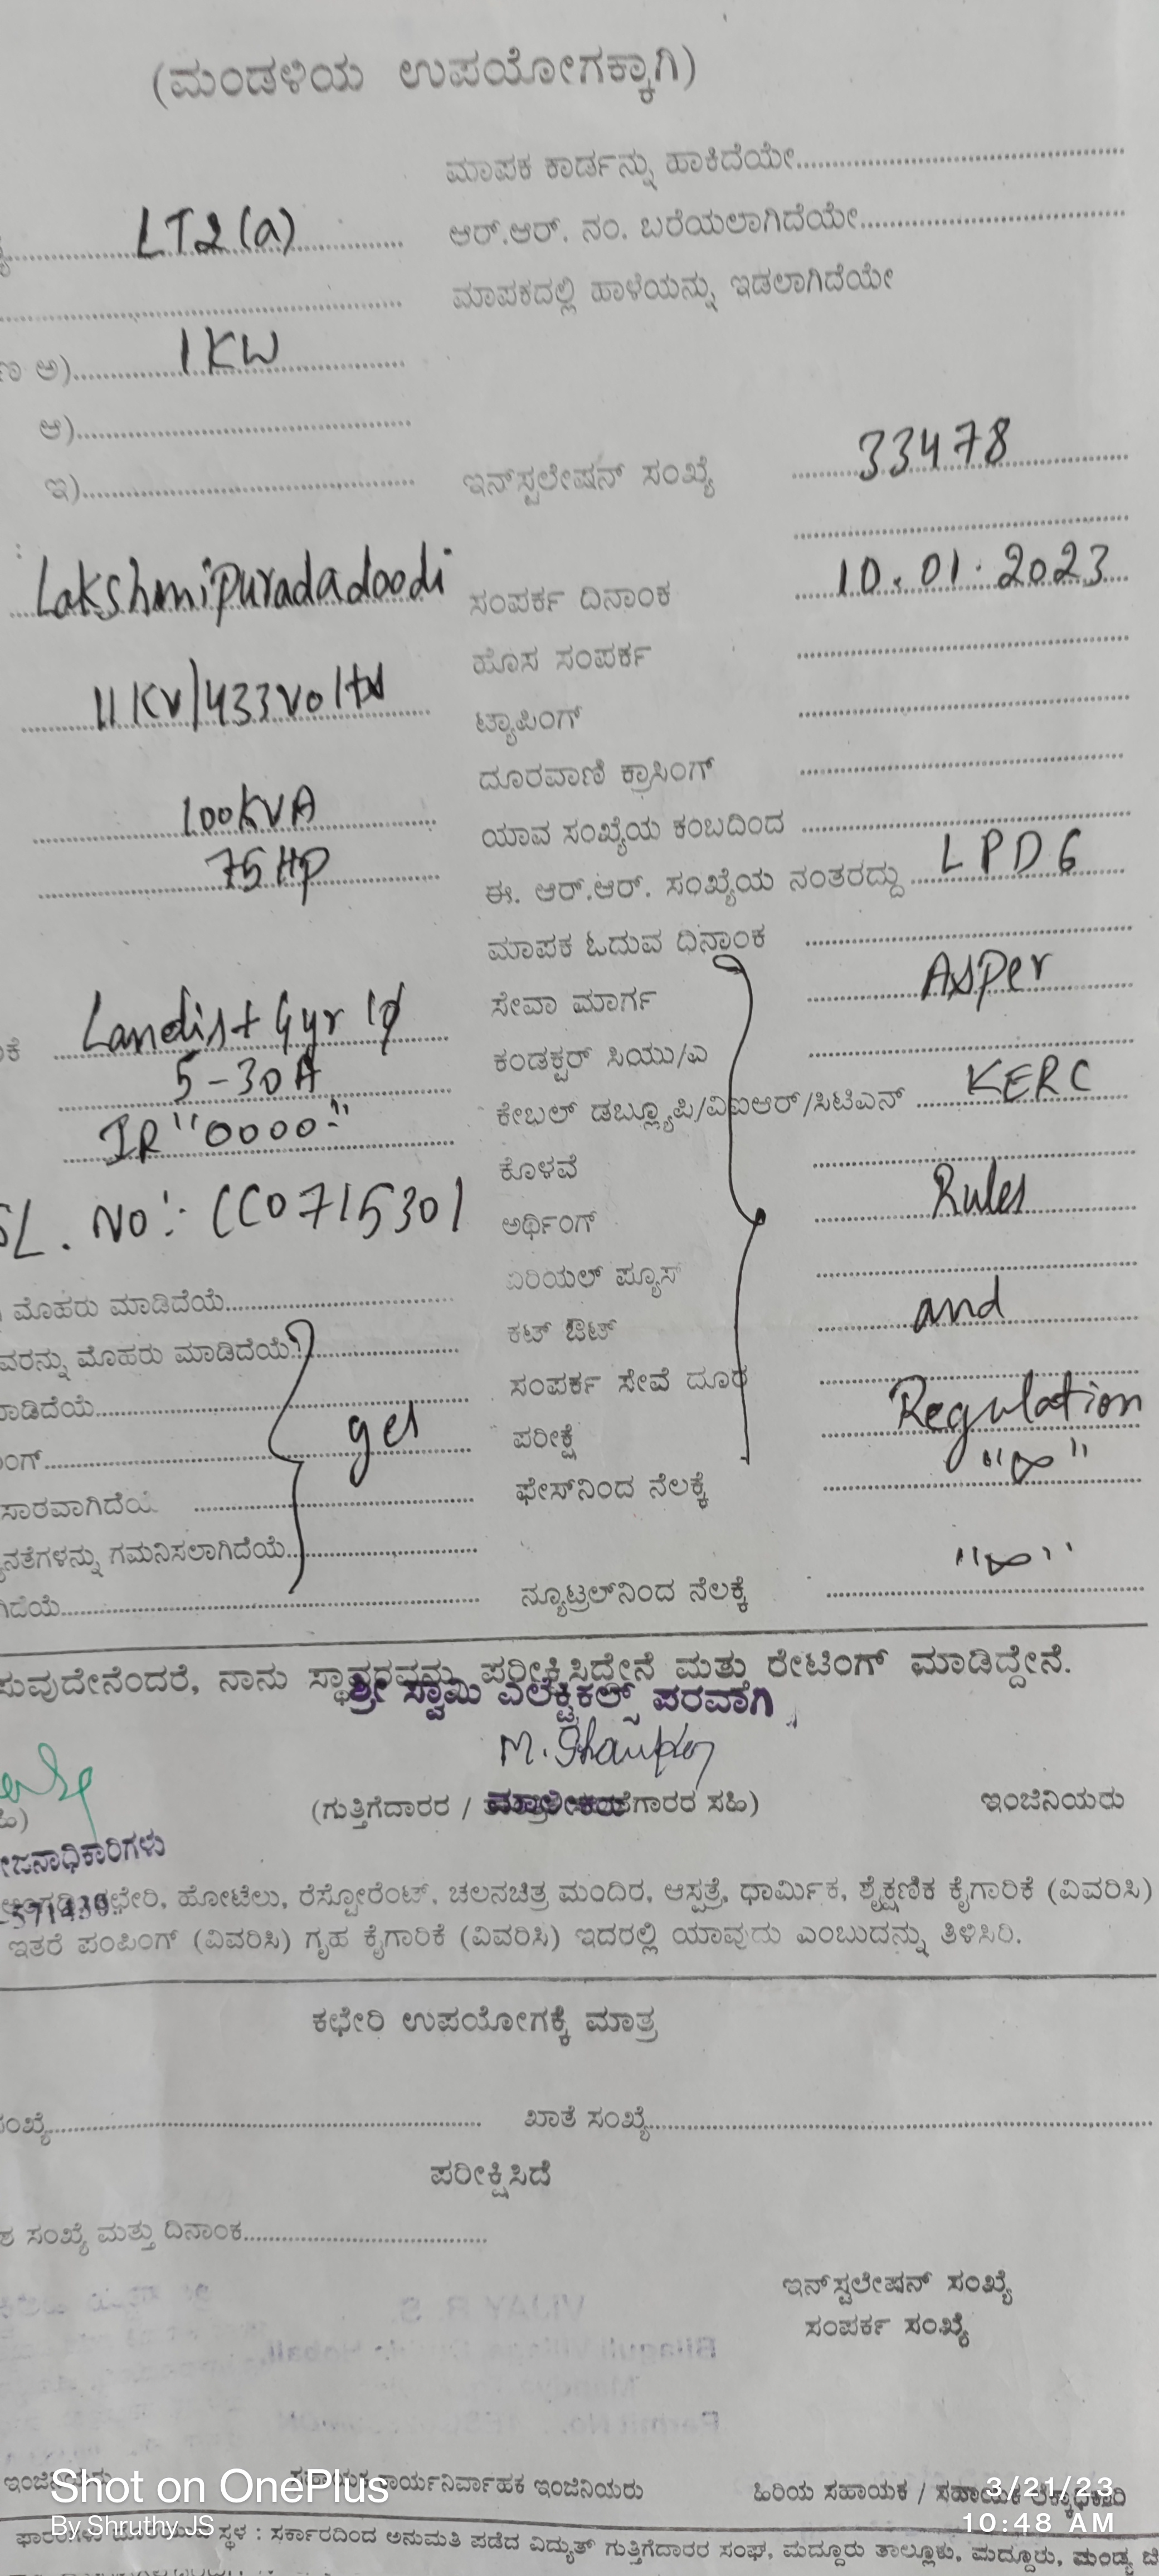 (ಮಂಡಳಿಯ ಉಪಯೋಗಕ್ಕಾಗಿ)
ಮಾಪಕ ಕಾರ್ಡನ್ನು ಹಾಕಿದೆಯೇ
LT2(a)
ಆರ್.ಆರ್. ನಂ. ಬರೆಯಲಾಗಿದೆಯೇ
ಮಾಪಕದಲ್ಲಿ ಹಾಳೆಯನ್ನು ಇಡಲಾಗಿದೆಯೇ
ಅ) 1KW
ಆ)
ಇ)
ಇನ್‌ಸ್ಟಲೇಷನ್ ಸಂಖ್ಯೆ 33478
Lakshmipuradadoodi
ಸಂಪರ್ಕ ದಿನಾಂಕ 10.01.2023
ಹೊಸ ಸಂಪರ್ಕ
11KV/433Volts
ಟ್ಯಾಪಿಂಗ್
ದೂರವಾಣಿ ಕ್ರಾಸಿಂಗ್
100KVA
ಯಾವ ಸಂಖ್ಯೆಯ ಕಂಬದಿಂದ
75HP
ಈ. ಆರ್.ಆರ್. ಸಂಖ್ಯೆಯ ನಂತರದ್ದು LPD6
ಮಾಪಕ ಓದುವ ದಿನಾಂಕ
Landis+Gyr 1ϕ
ಸೇವಾ ಮಾರ್ಗ Asper
5-30A
ಕಂಡಕ್ಟರ್ ಸಿಯು/ಎ
IR "0000"
ಕೇಬಲ್ ಡಬ್ಲ್ಯೂಪಿ/ವಿಐಆರ್/ಸಿಟಿಎನ್ KERC
ಕೊಳವೆ
SL. No: CC0715301
ಅರ್ಥಿಂಗ್ Rules
ಏರಿಯಲ್ ಪ್ಯೂಸ್
ಮೊಹರು ಮಾಡಿದೆಯೆ
ಕಟ್ ಔಟ್ and
ಮೊಹರು ಮಾಡಿದೆಯೆ
ಸಂಪರ್ಕ ಸೇವೆ ದೂರ
yes
ಪರೀಕ್ಷೆ Regulation
ಫೇಸ್‌ನಿಂದ ನೆಲಕ್ಕೆ "∞"
ಗಮನಿಸಲಾಗಿದೆಯೆ
ನ್ಯೂಟ್ರಲ್‌ನಿಂದ ನೆಲಕ್ಕೆ "∞"
ನಾನು ಸ್ಥಾವರವನ್ನು ಪರೀಕ್ಷಿಸಿದ್ದೇನೆ ಮತ್ತು ರೇಟಿಂಗ್ ಮಾಡಿದ್ದೇನೆ.
ಶ್ರೀ ಸ್ವಾಮಿ ಎಲೆಕ್ಟ್ರಿಕಲ್ಸ್ ಪರವಾಗಿ
(ಗುತ್ತಿಗೆದಾರರ / ಸಹಿ)
ಇಂಜಿನಿಯರು
571430.
ಹೋಟೆಲು, ರೆಸ್ಟೋರೆಂಟ್, ಚಲನಚಿತ್ರ ಮಂದಿರ, ಆಸ್ಪತ್ರೆ, ಧಾರ್ಮಿಕ, ಶೈಕ್ಷಣಿಕ ಕೈಗಾರಿಕೆ (ವಿವರಿಸಿ)
ಇತರೆ ಪಂಪಿಂಗ್ (ವಿವರಿಸಿ) ಗೃಹ ಕೈಗಾರಿಕೆ (ವಿವರಿಸಿ) ಇದರಲ್ಲಿ ಯಾವುದು ಎಂಬುದನ್ನು ತಿಳಿಸಿರಿ.
ಕಛೇರಿ ಉಪಯೋಗಕ್ಕೆ ಮಾತ್ರ
ಖಾತೆ ಸಂಖ್ಯೆ
ಪರೀಕ್ಷಿಸಿದೆ
ಸಂಖ್ಯೆ ಮತ್ತು ದಿನಾಂಕ
ಇನ್‌ಸ್ಟಲೇಷನ್ ಸಂಖ್ಯೆ
ಸಂಪರ್ಕ ಸಂಖ್ಯೆ
ಇಂಜಿನಿಯರು
ಇಂಜಿನಿಯರು
ಹಿರಿಯ ಸಹಾಯಕ /
Shot on OnePlus
By Shruthy JS
3/21/23
10:48 AM
ಸ್ಥಳ : ಸರ್ಕಾರದಿಂದ ಅನುಮತಿ ಪಡೆದ ವಿದ್ಯುತ್ ಗುತ್ತಿಗೆದಾರರ ಸಂಘ, ಮದ್ದೂರು ತಾಲ್ಲೂಕು, ಮದ್ದೂರು, ಮಂಡ್ಯ